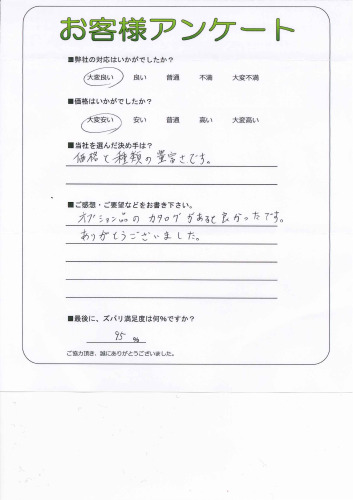 お客様アンケート
■弊社の対応はいかがでしたか?
大変良い 良い 普通 不満 大変不満
■価格はいかがでしたか?
大変安い 安い 普通 高い 大変高い
■当社を選んだ決め手は?
価格と種類の豊富さです。
■ご感想・ご要望などをお書き下さい。
オプション品のカタログがあると良かったです。
ありがとうございました。
■最後に、ズバリ満足度は何%ですか?
95 %
ご協力頂き、誠にありがとうございました。